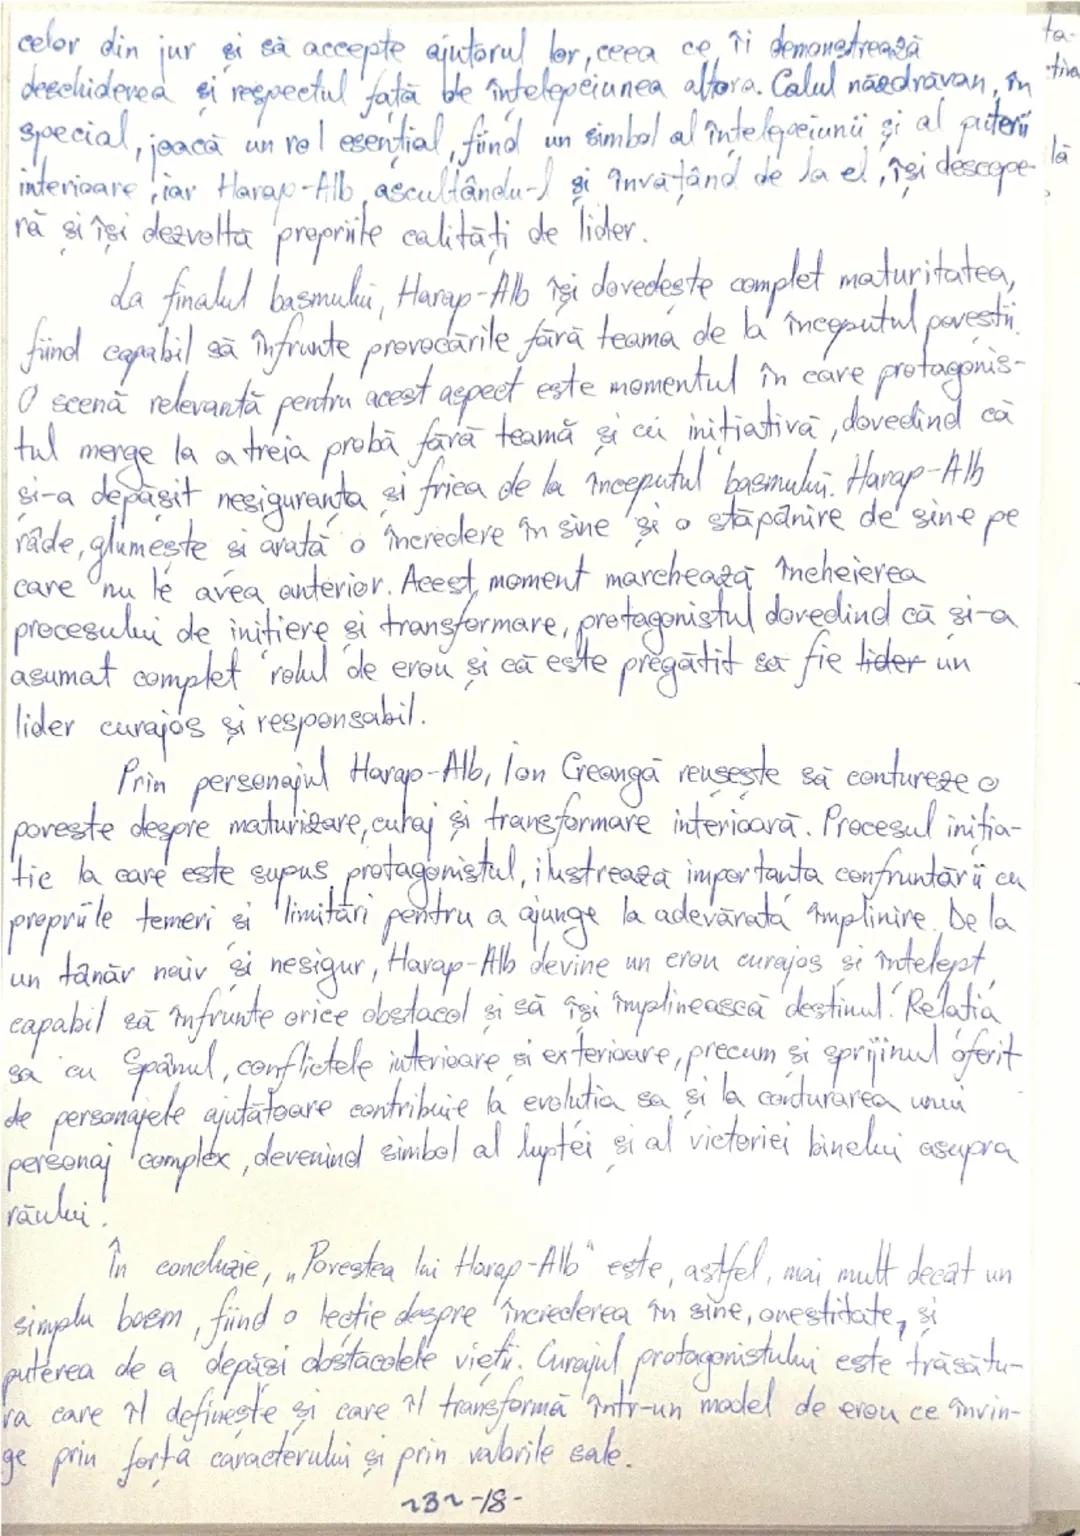 celor din jur și să accepte ajutorul lor, ceea ce îi demonstrează
deschiderea și respectul față de înțelepciunea altora. Calul năzdrăvan, în
special, joacă un rol esențial, fiind un simbol al înțelepciunii și al puterii
interioare, iar Harap-Alb, ascultându-l și învățând de la el, își descope-
ră și își dezvoltă propriile calități de lider.
La finalul basmului, Harap-Alb își dovedește complet maturitatea,
fiind capabil să înfrunte provocările fără teama de la începutul poveștii.
O scenă relevantă pentru acest aspect este momentul în care protagonis-
tul merge la a treia probă fără teamă și cu inițiativă, dovedind că
și-a depășit nesiguranța și frica de la începutul basmului. Harap-Alb
râde, glumește și arată o încredere în sine și o stăpânire de sine pe
care nu le avea anterior. Acest moment marchează încheierea
procesului de inițiere și transformare, protagonistul dovedind că și-a
asumat complet rolul de erou și că este pregătit să fie lider un
lider curajos și responsabil.
Prin personajul Harap-Alb, Ion Creangă reușește să contureze o
poveste despre maturizare, curaj și transformare interioară. Procesul iniția-
tic la care este supus protagonistul, ilustrează importanta confruntării cu
propriile temeri și limitări pentru a ajunge la adevărata împlinire. De la
un tânăr naiv și nesigur, Harap-Alb devine un erou curajos și înțelept,
capabil să înfrunte orice obstacol și să își împlinească destinul. Relația
sa cu Spânul, conflictele interioare și exterioare, precum și sprijinul oferit
de personajele ajutătoare contribuie la evoluția sa și la conturarea unui
personaj complex, devenind simbol al luptei și al victoriei binelui asupra
răului.
În concluzie, „Povestea lui Harap-Alb" este, astfel, mai mult decât un
simplu basm, fiind o lecție despre încrederea în sine, onestitate, și
puterea de a depăși obstacolele vieții. Curajul protagonistului este trăsătu-
ra care îl definește și care îl transformă într-un model de erou ce învin-
ge prin forța caracterului și prin valorile sale.
~3~ -18-
ta-
tiva
lă